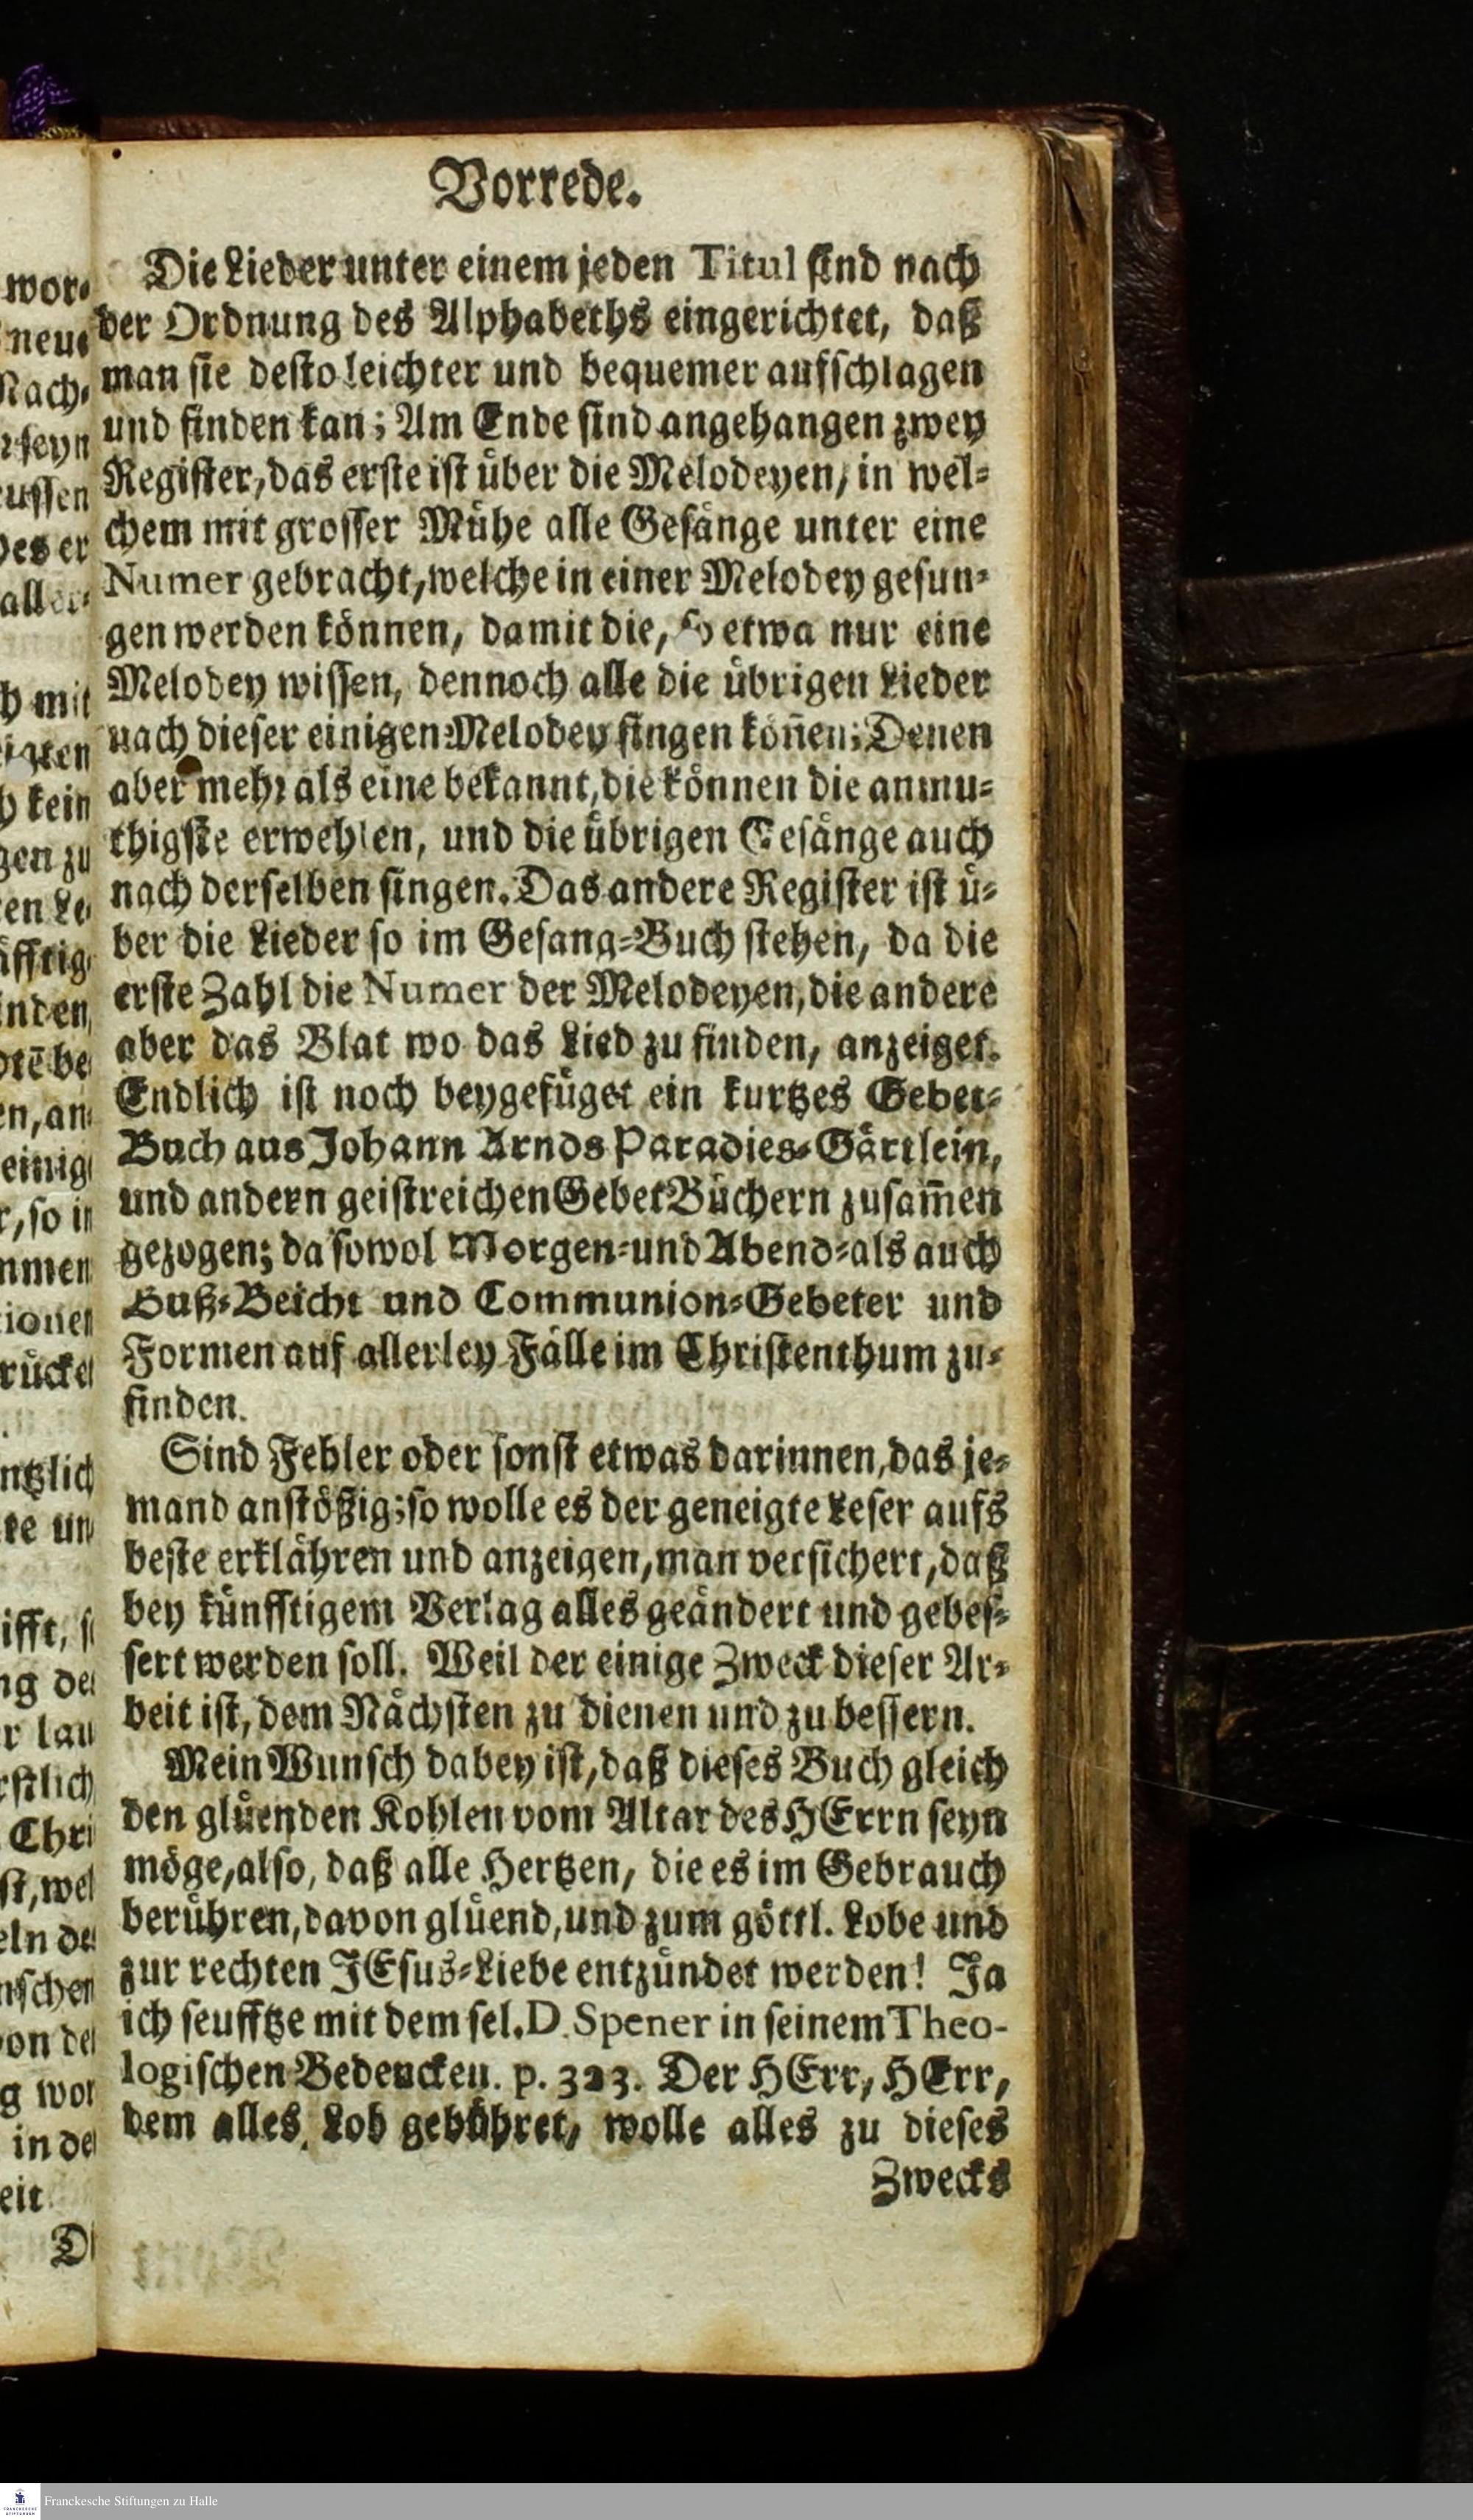 Vorrede.
Die Lieder unter einem jeden Titul sind nach
der Ordnung des Alphabeths eingerichtet, daß
man sie desto leichter und bequemer aufschlagen
und finden kan; Am Ende sind angehangen zwey
Register, das erste ist über die Melodeyen, in wel-
chem mit grosser Mühe alle Gesänge unter eine
Numer gebracht, welche in einer Melodey gesun-
gen werden können, damit die, so etwa nur eine
Melodey wissen, dennoch alle die übrigen Lieder
nach dieser einigen Melodey singen köñen; Denen
aber mehr als eine bekannt, die können die anmu-
thigste erwehlen, und die übrigen Gesänge auch
nach derselben singen. Das andere Register ist ü-
ber die Lieder so im Gesang-Buch stehen, da die
erste Zahl die Numer der Melodeyen, die andere
aber das Blat wo das Lied zu finden, anzeiget.
Endlich ist noch beygefüget ein kurtzes Gebet-
Buch aus Johann Arnds Paradies-Gärtlein,
und andern geistreichen Gebet Büchern zusam̃en
gezogen; da sowol Morgen- und Abend- als auch
Buß-Beicht und Communion-Gebeter und
Formen auf allerley Fälle im Christenthum zu-
finden.
Sind Fehler oder sonst etwas darinnen, das je-
mand anstößig; so wolle es der geneigte Leser aufs
beste erklähren und anzeigen, man versichert, daß
bey künfftigem Verlag alles geändert und gebes-
sert werden soll. Weil der einige Zweck dieser Ar-
beit ist, dem Nächsten zu dienen und zu bessern.
Mein Wunsch dabey ist, daß dieses Buch gleich
den glüenden Kohlen vom Altar des HErrn seyn
möge, also, daß alle Hertzen, die es im Gebrauch
berühren, davon glüend, und zum göttl. Lobe und
zur rechten JEsus-Liebe entzündet werden! Ja
ich seufftze mit dem sel. D. Spener in seinem Theo-
logischen Bedencken. p. 323. Der HErr, HErr,
dem alles Lob gebühret, wolle alles zu dieses
Zwecks
Franckesche Stiftungen zu Halle